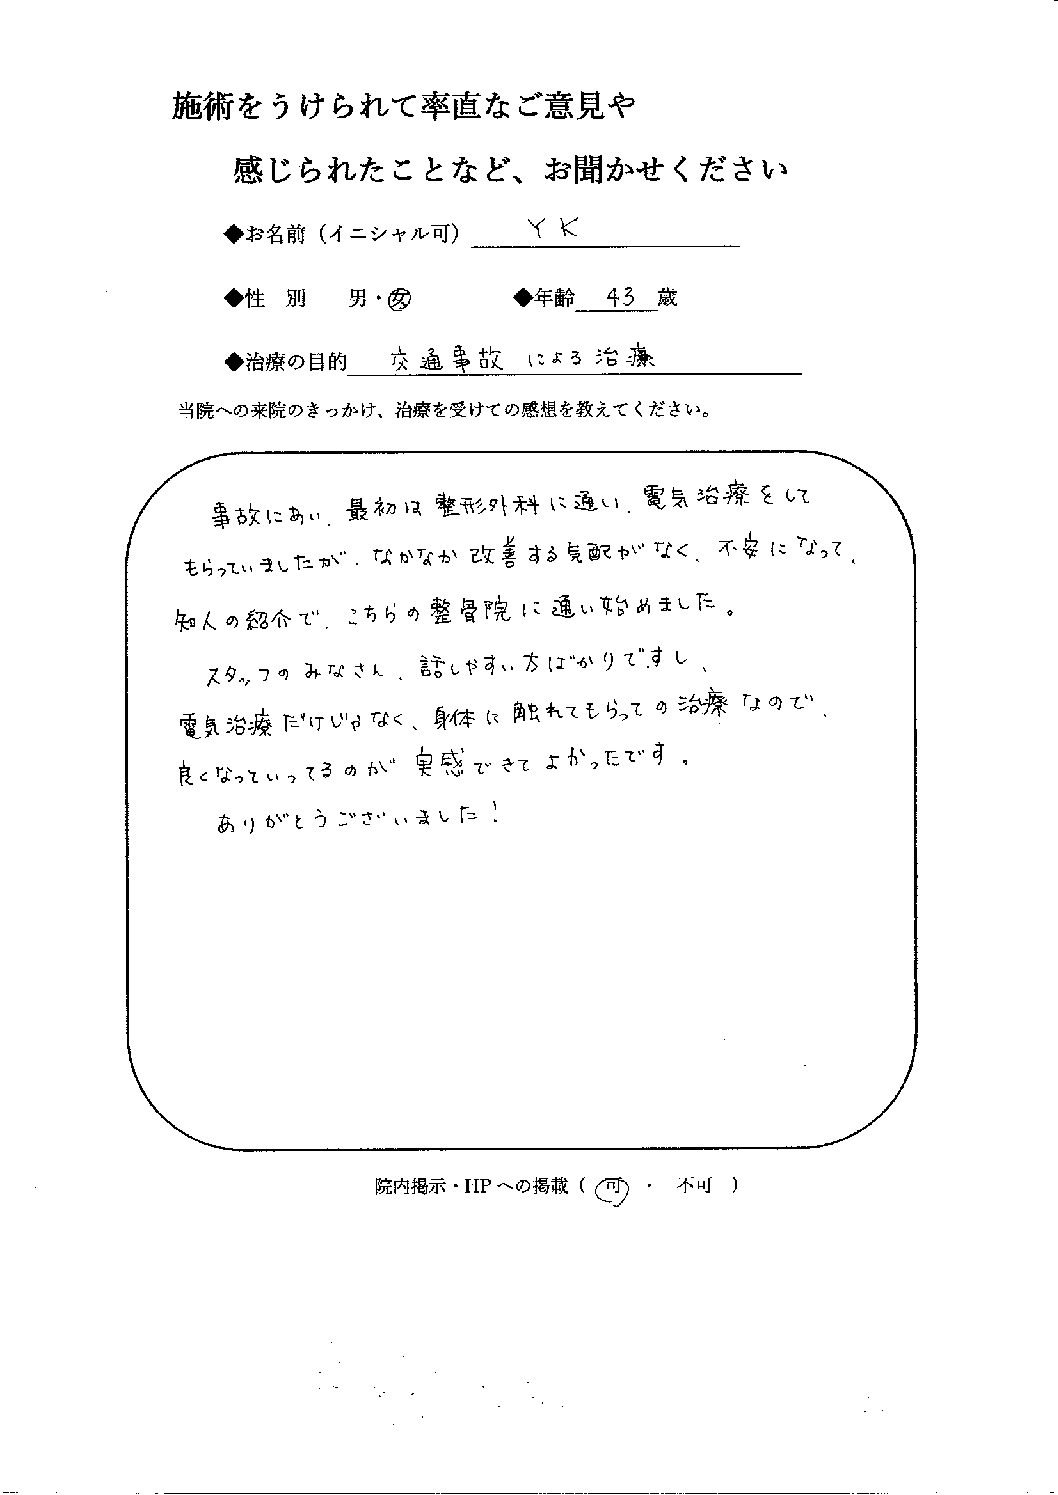 施術をうけられて率直なご意見や
感じられたことなど、お聞かせください
◆お名前（イニシャル可） YK
◆性 別 男・女 ◆年齢 43 歳
◆治療の目的 交通事故による治療
当院への来院のきっかけ、治療を受けての感想を教えてください。
事故にあい、最初は整形外科に通い、電気治療をして
もらっていましたが、なかなか改善する気配がなく、不安になって、
知人の紹介で、こちらの整骨院に通い始めました。
スタッフのみなさん、話しやすい方ばかりですし、
電気治療だけじゃなく、身体に触れてもらっての治療なので、
良くなっていってるのが実感できてよかったです。
ありがとうございました！
院内掲示・HPへの掲載（ 可 ・ 不可 ）